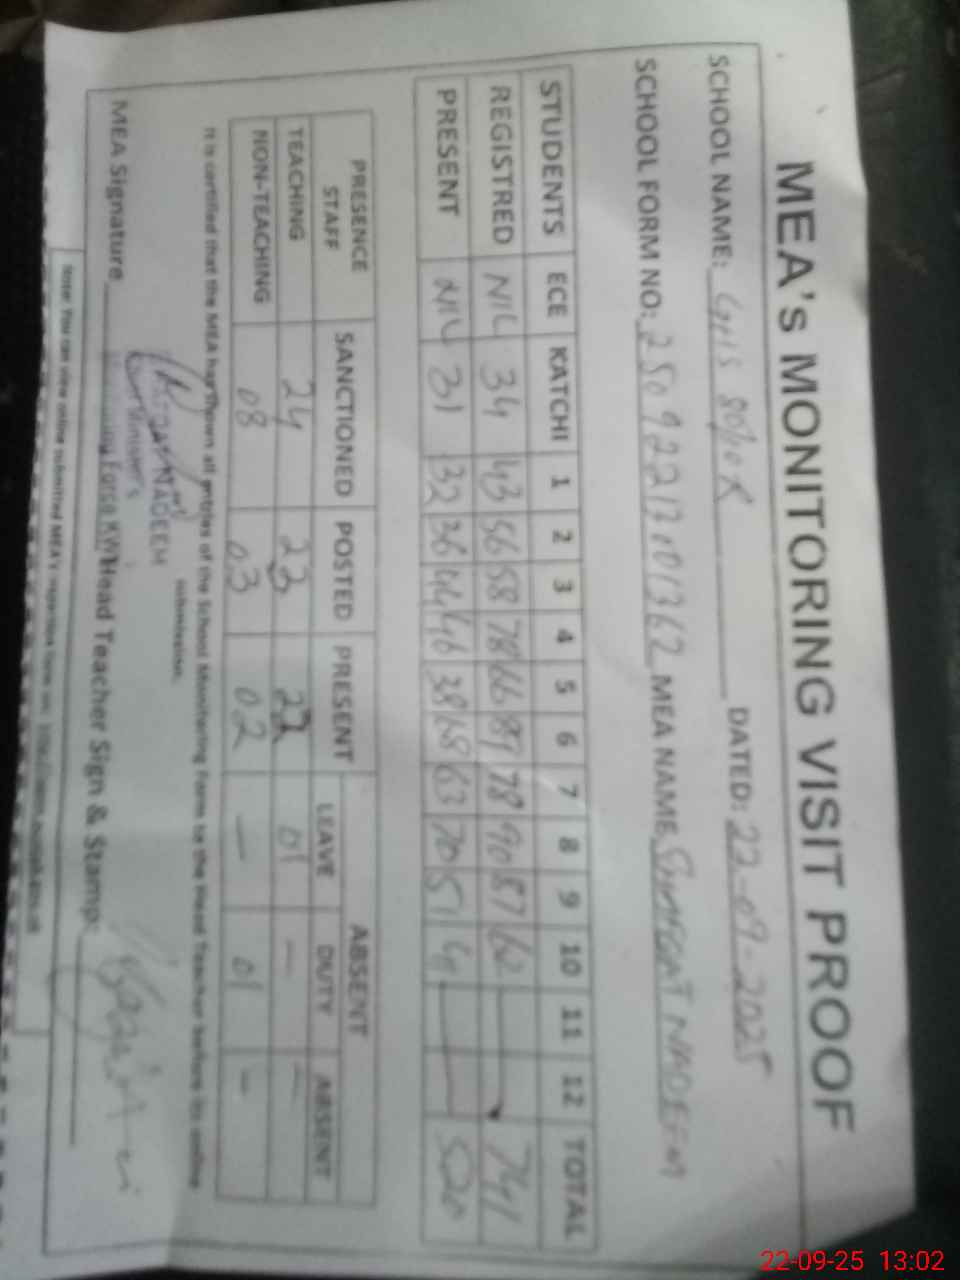 MEA's MONITORING VISIT PROOF
SCHOOL NAME: GHS DATED: 22-09-2025
SCHOOL FORM NO: MEA NAME NADEEM
STUDENTS ECE KATCHI 1 2 3 4 5 6 7 8 9 10 11 12 TOTAL
REGISTRED NIL 34 43 56 58 78 66 89 78 90 87 62 741
PRESENT NIL 31 32 36 44 46 38 68 63 70 51 41 520
PRESENCE STAFF SANCTIONED POSTED PRESENT ABSENT
LEAVE DUTY ABSENT
TEACHING 24 23 22 01 — —
NON-TEACHING 08 03 02 — 01 —
It is certified that the MEA has shown all entries of the School Monitoring Form to the Head Teacher before its online
submission.
NADEEM
MEA Signature Head Teacher Sign & Stamp:
Note: You can view online submitted MEA's
22-09-25 13:02